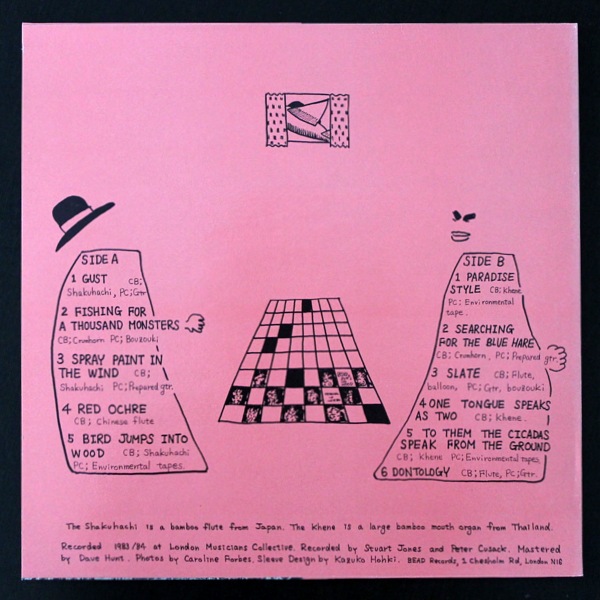 SIDE A
1 GUST CB;
Shakuhachi, PC; Gtr
2 FISHING FOR
A THOUSAND MONSTERS
CB; Crumhorn PC; Bouzouki
3 SPRAY PAINT IN
THE WIND CB;
Shakuhachi PC; Prepared gtr.
4 RED OCHRE
CB; Chinese flute
5 BIRD JUMPS INTO
WOOD CB; Shakuhachi
PC; Environmental tapes.
SIDE B
1 PARADISE
STYLE CB; Khene
PC; Environmental
tape.
2 SEARCHING
FOR THE BLUE HARE
CB; Crumhorn, PC; Prepared gtr.
3 SLATE CB; Flute,
balloon, PC; Gtr, bouzouki
4 ONE TONGUE SPEAKS
AS TWO CB; Khene.
5 TO THEM THE CICADAS
SPEAK FROM THE GROUND
CB; Khene PC; Environmental tapes
6 DONTOLOGY CB; Flute, PC; Gtr.
The Shakuhachi is a bamboo flute from Japan. The Khene is a large bamboo mouth organ from Thailand.
Recorded 1983/84 at London Musicians Collective. Recorded by Stuart Jones and Peter Cusack. Mastered
by Dave Hunt. Photos by Caroline Forbes. Sleeve Design by Kazuko Hohki. BEAD Records, 2 Chesholm Rd, London N16